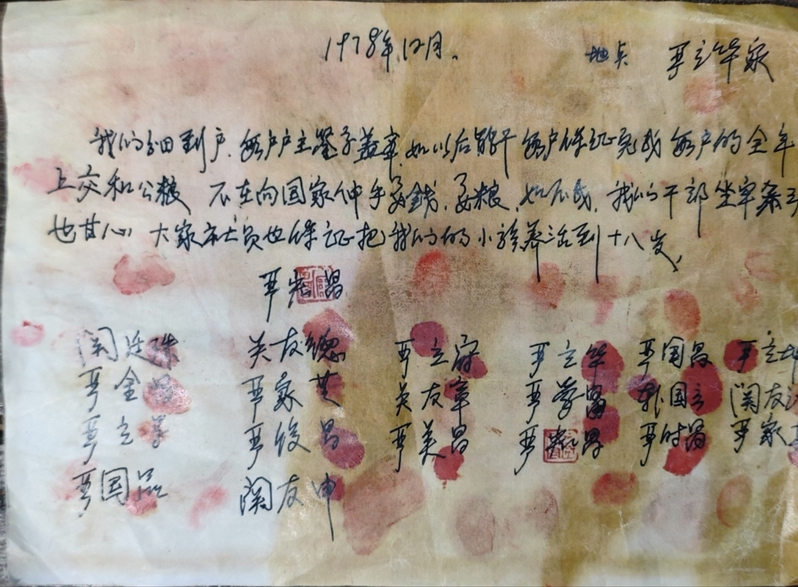 1978年12月. 地点 严立华家
我们分田到户,每户户主签字盖章,如以后能干每户保证完成每户的全年
上交和公粮 不在向国家伸手要钱,要粮,如不成,我们干部坐牢杀
也甘心 大家社员也保证把我们的小孩养活到十八岁,
严宏昌
关廷珠 关友德 严立富 严立华 严国昌 严立坤
严金昌 严家芝 吴友章 严学昌 韩国云 关友江
严立学 严俊昌 严美昌 严宏昌 严付昌 严家其
严国品 关友申